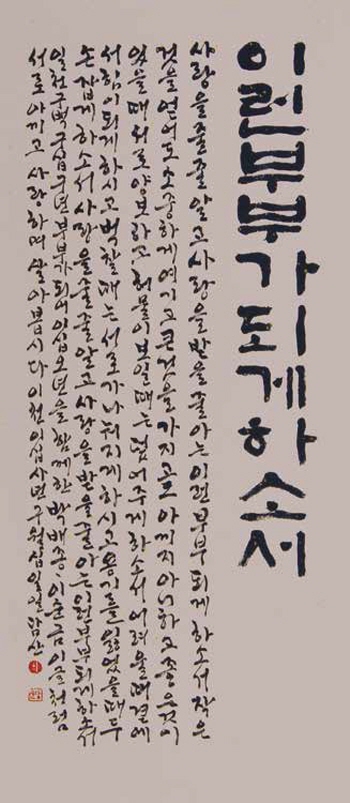 이런부부가되게하소서
사랑을 줄 줄 알고 사랑을 받을 줄 아는 이런 부부 되게 하소서 작은
것을 얻어도 소중하게 여기고 큰 것을 가지고도 아끼지 아니하고 좋은 것이
있을 때 서로 양보하고 허물이 보일 때는 덮어주게 하소서 어려울 때 곁에
서 힘이 되게 하시고 벅찰 때는 서로가 나눠지게 하시고 용기를 잃었을 때 두
손 잡게 하소서 사랑을 줄 줄 알고 사랑을 받을 줄 아는 이런 부부 되게 하소서
일천구백구십구년 부부가 되어 이십오년을 함께한 박배종, 이준금 이 글처럼
서로 아끼고 사랑하며 살아봅시다 이천이십사년 구월 담산